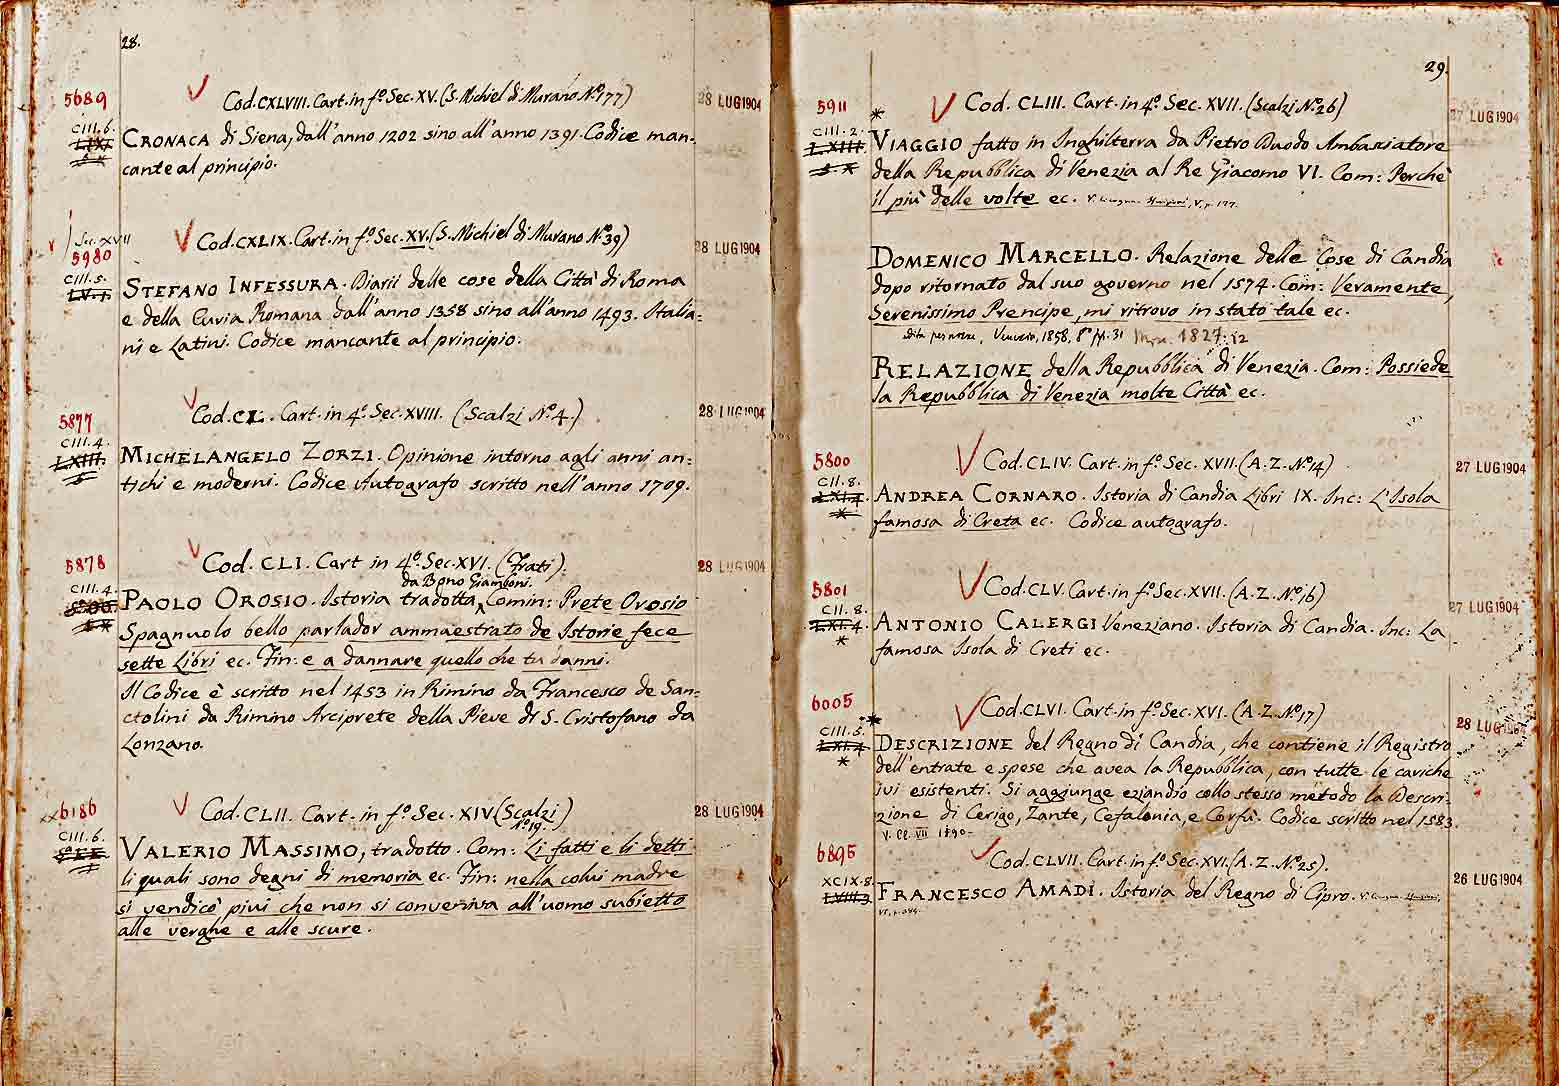 28.
5689
Cod. CXLVIII. Cart. in fº. Sec. XV. (S. Michiel di Murano Nº. 177)
28 LUG 1904
CIII. 6.
CRONACA di Siena, dall'anno 1202 sino all'anno 1391. Codice man-
cante al principio.
Sec. XVII
Cod. CXLIX. Cart. in fº. Sec. XV. (S. Michiel di Murano Nº. 39)
28 LUG 1904
5980
CIII. 5.
LV. 7.
STEFANO INFESSURA. Diarii delle cose della Città di Roma
e della Curia Romana dall'anno 1358 sino all'anno 1493. Italia=
ni e Latini. Codice mancante al principio.
5877
Cod. CL. Cart. in 4º. Sec. XVIII. (Scalzi Nº. 4.)
28 LUG 1904
CIII. 4.
LXIII.
5
MICHELANGELO ZORZI. Opinione intorno agli anni an=
tichi e moderni. Codice Autografo scritto nell'anno 1709.
5878
Cod. CLI. Cart in 4º. Sec. XVI. (Frati).
28 LUG 1904
da Bono Giamboni.
CIII. 4.
PAOLO OROSIO. Istoria tradotta, Comin: Prete Orosio
Spagnuolo bello parlador ammaestrato de Istorie fece
sette Libri ec. Fin: e a dannare quello che tu danni.
Il Codice è scritto nel 1453 in Rimino da Francesco de San=
ctolini da Rimino Arciprete della Pieve di S. Cristofano da
Lonzano.
xx6186
Cod. CLII. Cart. in fº. Sec. XIV (Scalzi)
Nº. 19.
28 LUG 1904
CIII. 6.
VALERIO MASSIMO, tradotto. Com: Li fatti e li detti
li quali sono degni di memoria ec. Fin: nella colui madre
si vendicò piui che non si conveniva all'uomo subietto
alle verghe e alle scure.
29.
5911
* Cod. CLIII. Cart. in 4º. Sec. XVII. (Scalzi Nº. 26)
27 LUG 1904
CIII. 2.
LXIII.
5. *
VIAGGIO fatto in Inghilterra da Pietro Duodo Ambasciatore
della Repubblica di Venezia al Re Giacomo VI. Com: Perchè
il più delle volte ec.
DOMENICO MARCELLO. Relazione delle Cose di Candia
dopo ritornato dal suo governo nel 1574. Com: Veramente,
Serenissimo Prencipe, mi ritrovo in stato tale ec.
Edita per nozze, Venezia, 1858, 8º pp. 31
RELAZIONE della Repubblica di Venezia. Com: Possiede
la Repubblica di Venezia molte Città ec.
5800
Cod. CLIV. Cart. in fº. Sec. XVII. (A. Z. Nº. 14)
27 LUG 1904
CII. 8.
LXI. 4.
*
ANDREA CORNARO. Istoria di Candia Libri IX. Inc: L'Isola
famosa di Creta ec. Codice autografo.
5801
Cod. CLV. Cart. in fº. Sec. XVII. (A. Z. Nº. 16)
27 LUG 1904
CII. 8.
LXI. 4
*
ANTONIO CALERGI Veneziano. Istoria di Candia. Inc: La
famosa Isola di Creti ec.
6005
* Cod. CLVI. Cart. in fº. Sec. XVI. (A. Z. Nº. 17)
28 LUG 1904
CIII. 5.
LXI. 4
*
DESCRIZIONE del Regno di Candia, che contiene il Registro
dell'entrate e spese che avea la Repubblica, con tutte le cariche
ivi esistenti. Si aggiunge eziandio collo stesso metodo la Descri-
zione di Cerigo, Zante, Cefalonia, e Corfù. Codice scritto nel 1583.
6895
Cod. CLVII. Cart. in fº. Sec. XVI. (A. Z. Nº. 25).
26 LUG 1904
XCIX. 8.
LVIII. 3
FRANCESCO AMADI. Istoria del Regno di Cipro.